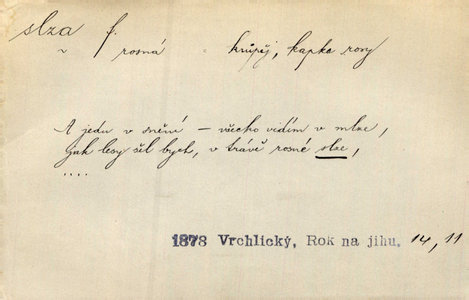 slza f.
~ rosná = krůpěj, kapka rosy
A jedu v snění – všecko vidím v mlze,
Jak lesy šel bych, v trávě rosné slze,
....
1878 Vrchlický, Rok na jihu. 14, 11